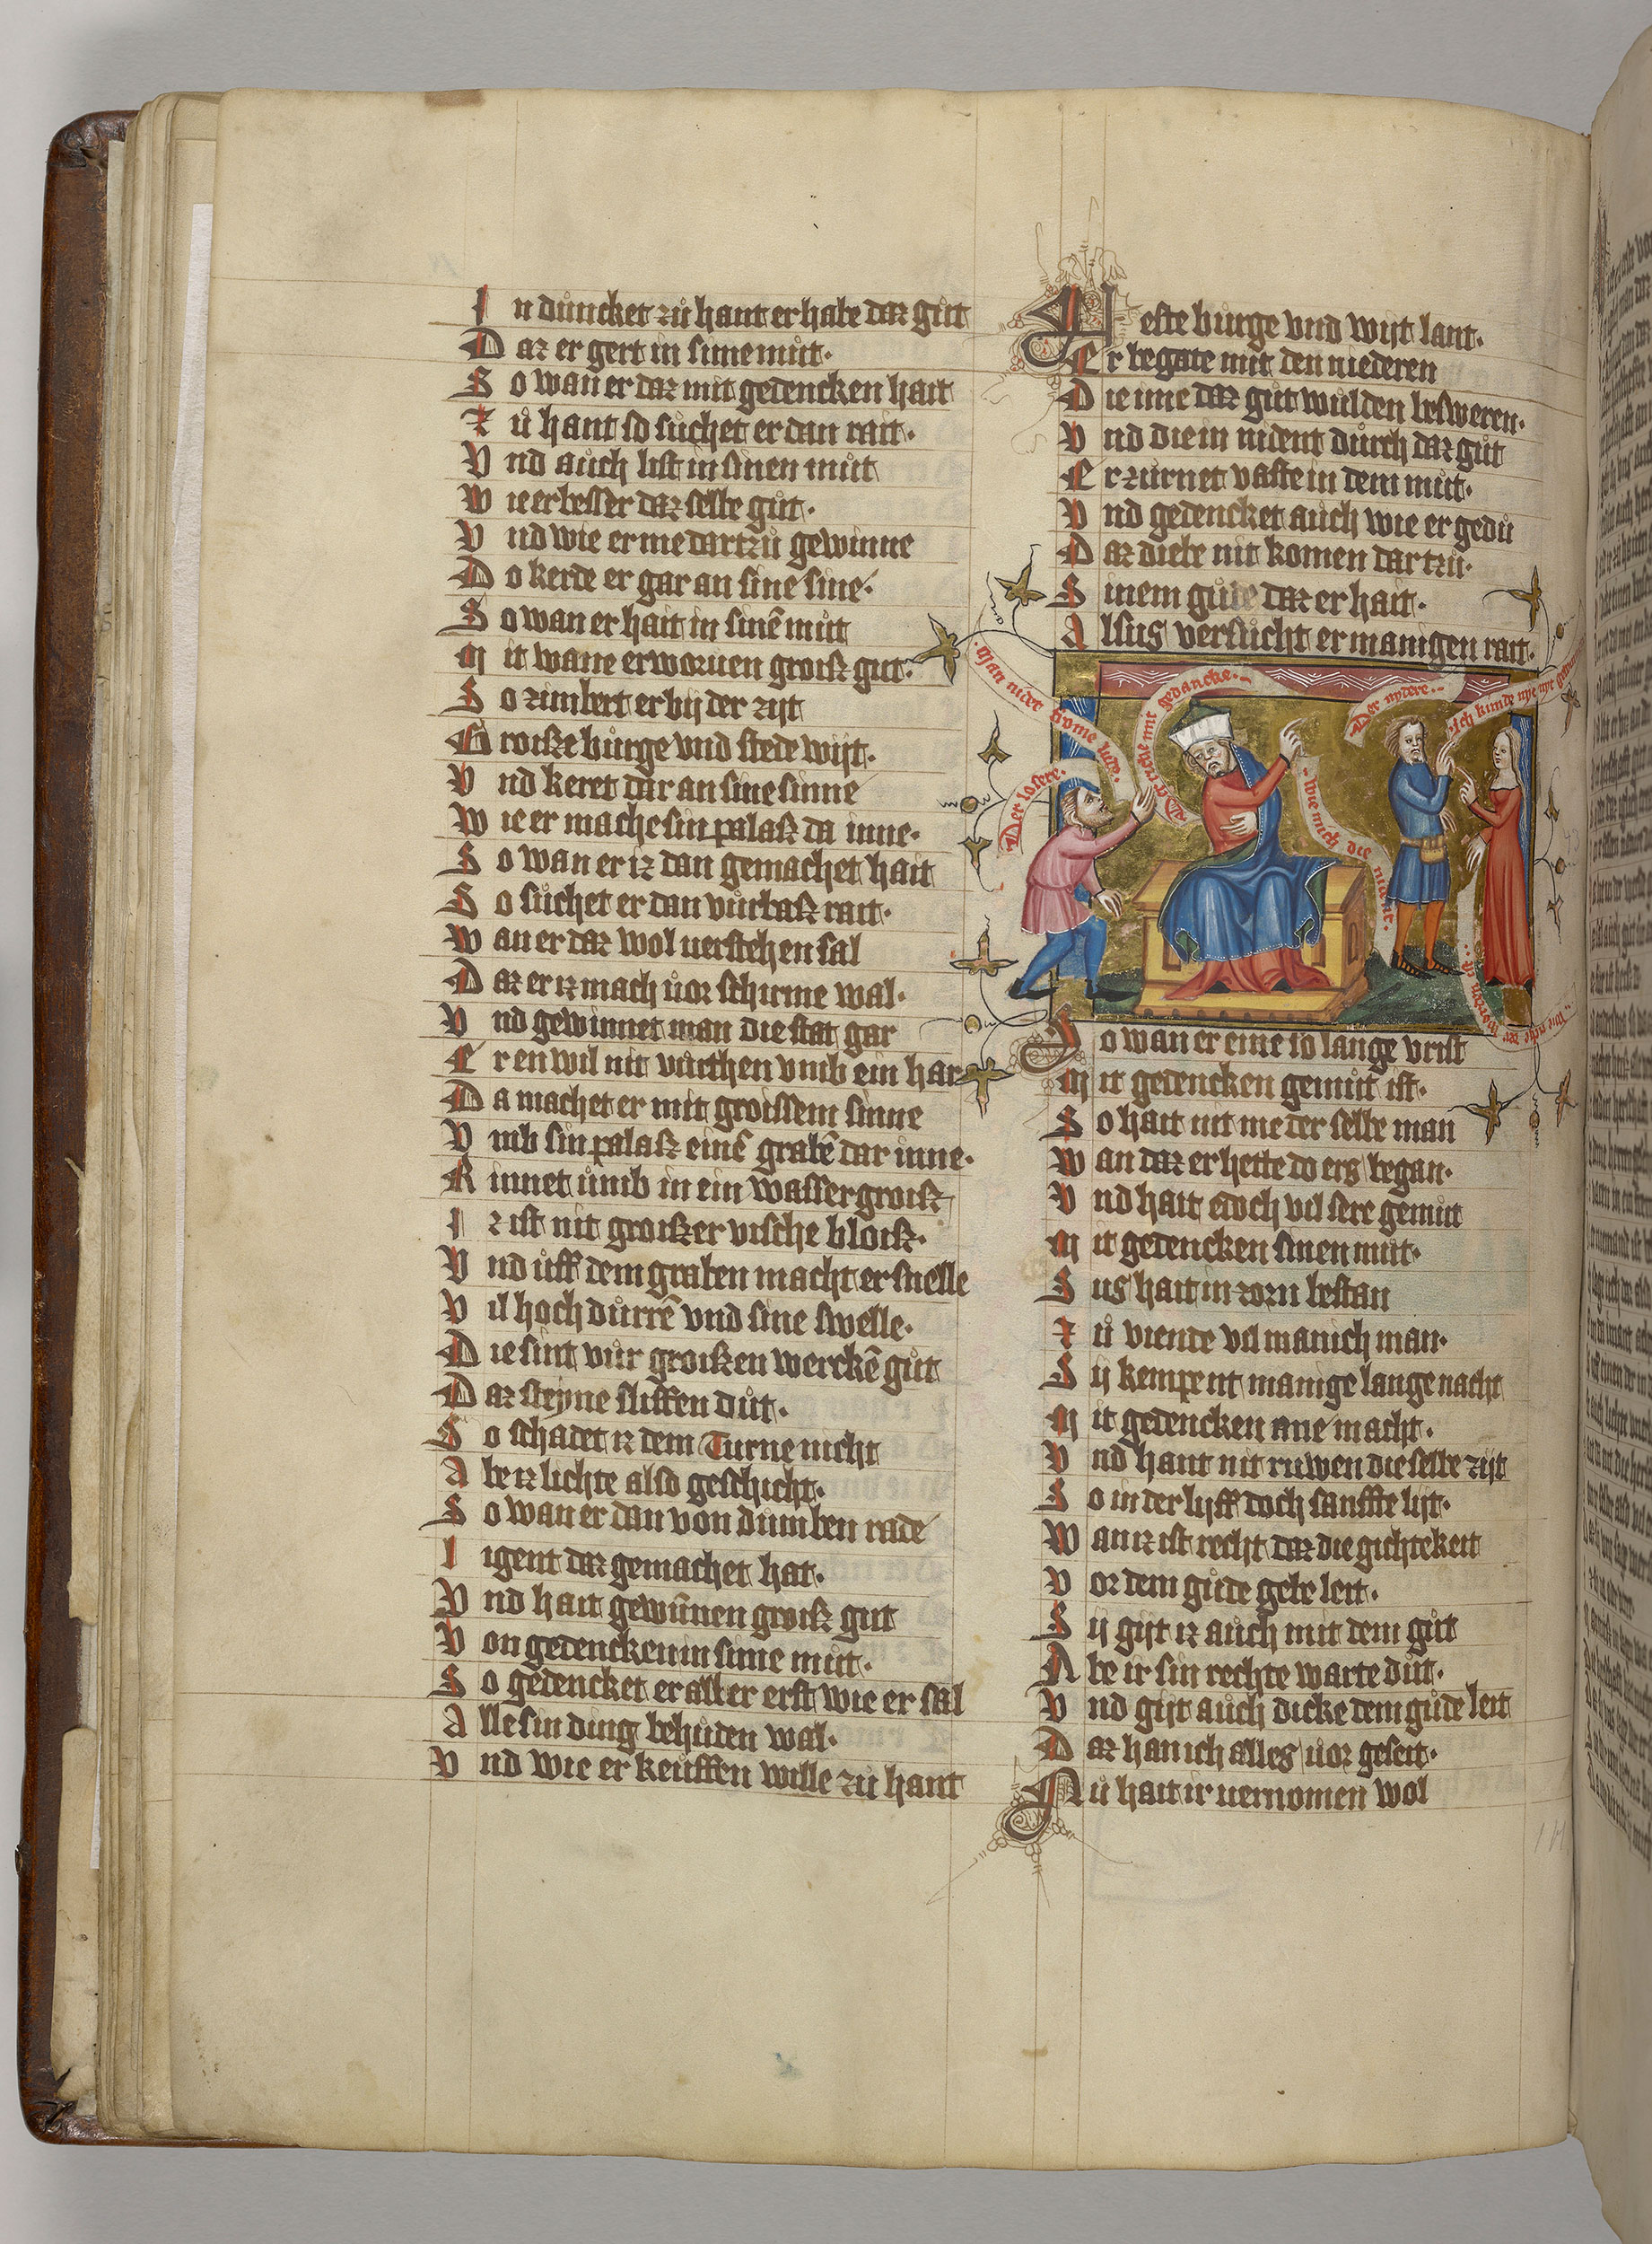 In důncket zů hant er habe daz gůt
Daz er gert in sime můt.
So wan er daz mit gedencken hait
Zů hant so sůchet er dan rait.
Vnd aůch list in sinen můt
Wie er besser daz selbe gůt.
Vnd wie er me dartzů gewinne
Do kerde er gar an sine sine.
So wan er hait in sinē můt
Mit wane erworuen groiſz gut.
So zimbert er bij der zijt
Groiſze bůrge vnd stede wijt.
Vnd keret dar an sine sinne
Wie er mache sin palaſz da inne.
So wan er iz dan gemachet hait
So sůchet er dan vůrbaſz rait.
Wan er daz wol uerstehen sal
Daz er iz mach ůor schirme wal.
Vnd gewinnet man die stat gar
Er en wil nit vůrthen vmb ein har
Da machet er mit groissem sinne
Vmb sin palaſz einē grabē dar inne.
Rinnet ůmb in ein wasser groiſz
Iz ist nit groiſzer vische bloiſz.
Vnd ůff dem graben macht er snelle
Vil hoch důrrē vnd sine swelle.
Die sint vůr groiſzen werckē gůt
Daz steyne sliffen důt.
So schadet iz dem Turne nicht
Abe iz lichte also geschicht.
So wan er dan von dumben rade
Iigent daz gemachet hat.
Vnd hait gewūnen groiſz gut
Von gedencken in sime můt.
So gedencket er alber erst wie er sal
Alle sin ding behůden wal.
Vnd wie er keůffen wille zů hant
Veste bůrge vnd wijt lant.
Er begate mit den niederen
Die ime daz gůt wůlden besweren.
Vnd die in nident důrch daz gůt
Er zůrnet vaste in dem můt.
Vnd gedencket auch wie er gedů
Daz diebe nit komen dar tzů.
Sinem gůte daz er hait.
Alsus versůcht er manigen rait.
Man nidet frome lude.
Der losere.
Der rechte mit gedancke.
Wie mich die nident.
Der nydere.
Ich kunde nye nyt
Wie riche der worden
So wan er eine so lange vrist
Mit gedencken gemůt ist.
So hait nit me der selbe man
Wan daz er hette do ers began.
Vnd hait doch vil sere gemůt
Mit gedencken sinen můt.
Sus hait in zorn bestan
Zů viende vil manich man.
Sij kempent manige lange nacht
Mit gedencken ane macht.
Vnd hant nit ruwen die selbe zijt
So in der lijff doch sanffte lijt.
Wan iz ist recht daz die gichtekeit
Vor dem gůde gebe leit.
Sij gijt iz aůch mit dem gůt
Abe ir sin rechte warte důt.
Vnd gijt aůch dicke dem gůde leit
Daz han ich alles ůor geseit.
Nů hait ir uernomen wol